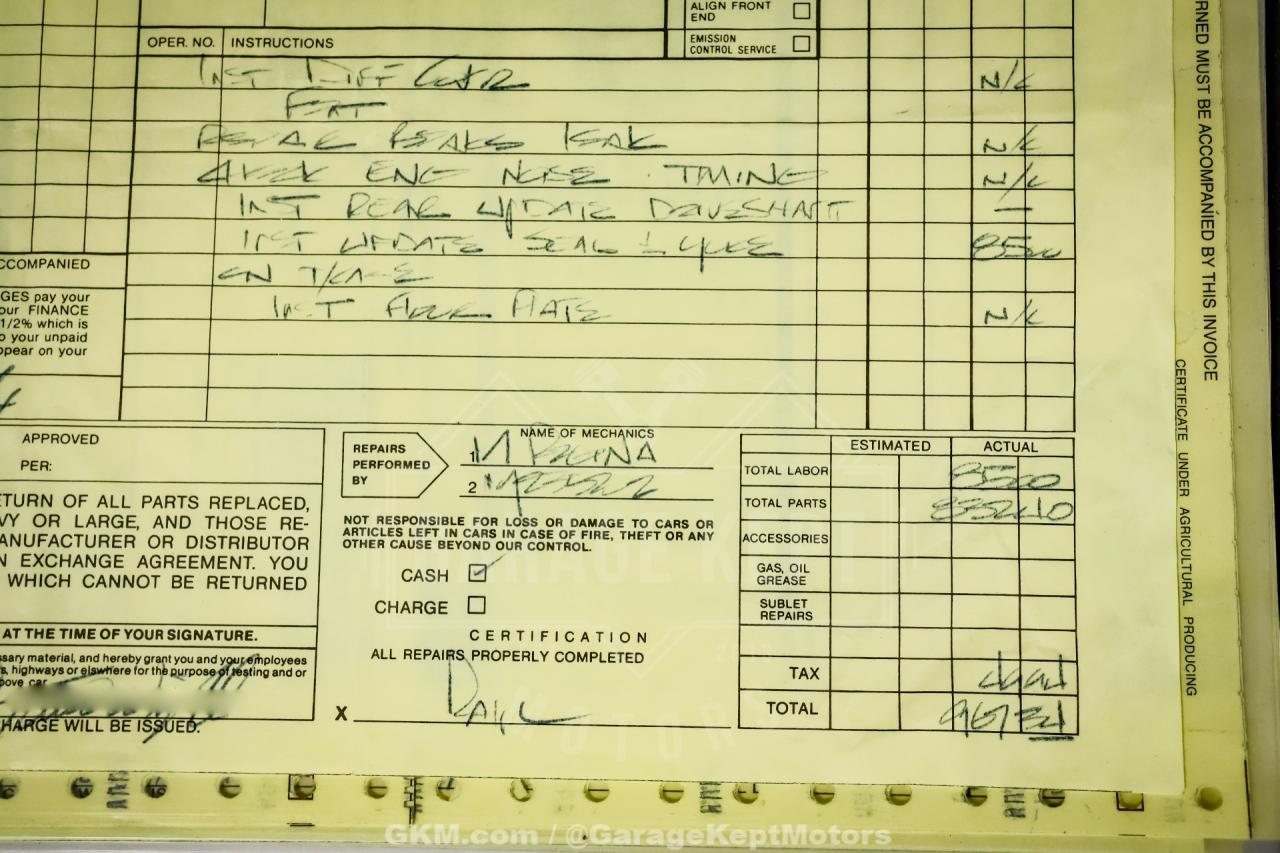 ALIGN FRONT END
EMISSION CONTROL SERVICE
OPER. NO. INSTRUCTIONS
INST DIFF N/C
N/C
ENG NOISE · TIMING N/C
INST REAR UPDATE DRIVESHAFT —
INST UPDATE SEAL & YOKE 8500
ON T/CASE
INST FLOOR MATS N/C
CCOMPANIED
GES pay your
our FINANCE
1/2% which is
o your unpaid
ppear on your
APPROVED
PER:
ETURN OF ALL PARTS REPLACED,
VY OR LARGE, AND THOSE RE-
ANUFACTURER OR DISTRIBUTOR
N EXCHANGE AGREEMENT. YOU
WHICH CANNOT BE RETURNED
AT THE TIME OF YOUR SIGNATURE.
ssary material, and hereby grant you and your employees
s, highways or elswhere for the purpose of testing and or
bove car
HARGE WILL BE ISSUED.
REPAIRS PERFORMED BY
NAME OF MECHANICS
1
2
NOT RESPONSIBLE FOR LOSS OR DAMAGE TO CARS OR
ARTICLES LEFT IN CARS IN CASE OF FIRE, THEFT OR ANY
OTHER CAUSE BEYOND OUR CONTROL.
CASH ✓
CHARGE
CERTIFICATION
ALL REPAIRS PROPERLY COMPLETED
X
ESTIMATED ACTUAL
TOTAL LABOR 8500
TOTAL PARTS
ACCESSORIES
GAS, OIL GREASE
SUBLET REPAIRS
TAX
TOTAL
RNED MUST BE ACCOMPANIED BY THIS INVOICE
CERTIFICATE UNDER AGRICULTURAL PRODUCING
GARAGE KEPT
MOTORS
GKM.com / @GarageKeptMotors